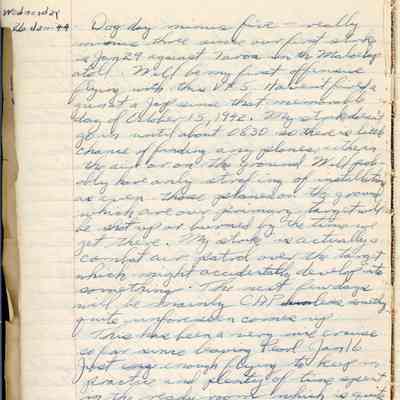 Wednesday
26 Jan 44
Dog day minus five - really
minus three since our first strike
is Jan 29 against Taroa in the Maloelap
atoll. Will be my first offensive
flying with this V.F.S. Haven't fired a
gun at a Jap since that memorable
day of October 15, 1942. My strike doesn't
go in until about 0830 so there is little
chance of finding any planes either in
the air or on the ground. Will prob-
ably have only strafing of installations
as even those planes on the ground
which are our primary target will
be shot up or burned by the time we
get there. My strike is actually a
combat air patrol over the target
which might accidentally develop into
something. The next few days
will be mainly CAP unless something
quite unforeseen comes up.
This has been a very nice cruise
so far since leaving Pearl Jan 16.
Just enough flying to keep in
practice and plenty of time spent
in the ready room which is quite